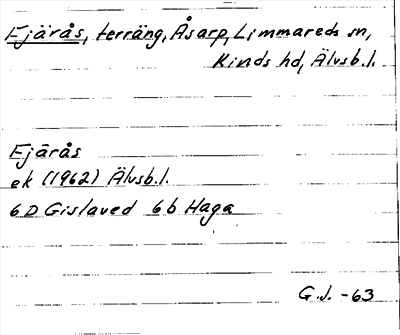 Ejärås, terräng, Åsarp, Limmareds sn,
Kinds hd, Älvsb.l.
Ejärås
ek (1962) Älvsb.l.
6D Gislaved 6b Haga
G.J. -63